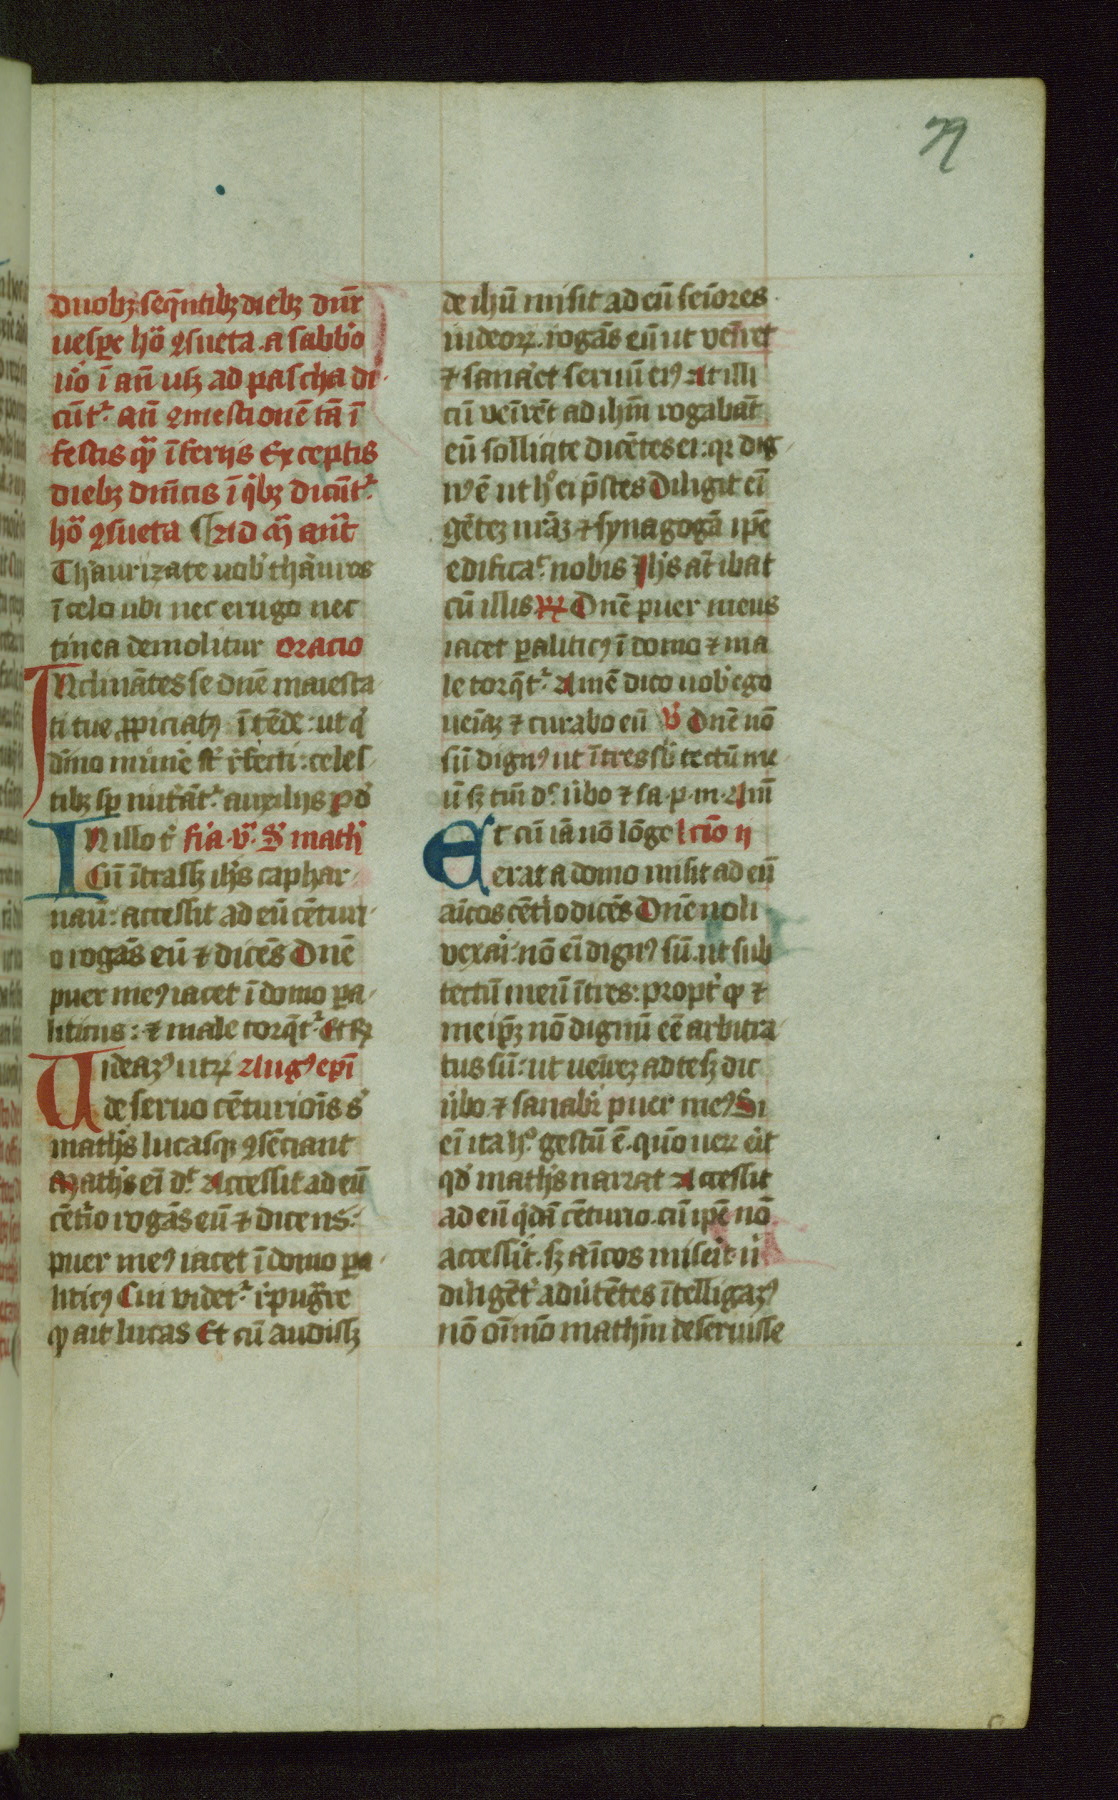 79
duobꝫ seq̄ntibꝫ diebꝫ dūr
uesꝑe ho̅ ꝯsueta . a sabbo
uͦo ī an̄ usqꝫ ad pascha di
cūtᷣ an̄ tā ī
festis qᷓ ī feriis Exceptis
diebꝫ dn̄icis ī qͥbꝫ dicūtᷣ
ho̅ ꝯsueta ¶ Ad an̄
Thaurizate uob thauros
ī celo ubi nec erugo nec
tinea demolitur oracio
Inclinātes se dn̄e maiesta
ti tue ꝓpiciatꝰ ītēde : ut qͥ
dīno mun̄e st̄ r̄fecti : celes
tibꝫ sꝑ nut̄atᷣ auxiliis P d
IN illo t̄ fīa v̄ S math
Cū ītrassꝫ ih̄s caphar
naū : accessit ad eū cētur
o rogās eū ⁊ dicēs Dn̄e
puer meꝰ iacet ī domo ꝑa
liticus : ⁊ male torq̄tᷣ Et rꝫ
Uideazꝰ utꝝ Augꝰ ep̄i
de seruo cēturiōis s
mathꝰs lucasqꝫ ꝯsēciant
Mathꝰs ei d Accessit ad eū
cētͥo rogās eū ⁊ dicens :
puer meꝰ iacet ī domo ꝑa
liticꝰ Cui videtᷣ r̄pugͣre
qꝫ ait lucas Et cū audissꝫ
de ih̄u misit ad eū sēiores
iudeoꝝ . rogās eū ut ven̄et
⁊ sanaͬet seruū eiꝰ At illi
cū ven̄ēt ad ih̄m rogabāt
eū sollicite dicētes ei : qꝛ dig
nꝰ ē ut hͦ ei p̄stes Diligit ei
gētez nr̄aꝫ ⁊ synagogā ip̄e
edificaᷤ nobis Ih̄s at̄ ibat
cū illis Dn̄e puer meus
iacet ꝑaliticꝰ ī domo ⁊ ma
le torq̄tᷣ Amē dico uob ego
ueīaꝫ ⁊ curabo eū V Dn̄e nō
sū dignꝰ ut ītres sb̄ tectū me
ū sꝫ tm̄ d uͦbo ⁊ sa . p . m . Am̄
Et cū iā nō lōge lcīo ii
erat a domo misit ad eū
aīcos cētͥo dicēs Dn̄e noli
vexaͬi : nō ei dignꝰ sū . ut sub
tectū meū ītres : propt̄ qꝫ ⁊
meip̄ꝫ nō dignū eē arbitra
tus sū : ut ueīrez ad te sꝫ dic
uͦbo ⁊ sanabᷣ puer meꝰ Si
ei ita hͦ gestū ē . quō ueꝝ eit
qd̄ mathꝰs narrat Accessit
ad eū qͥdā cēturio . cū ip̄e nō
accessit . sꝫ aīcos miseit n̄
diligēt̄ aduͦtētes ītelligazꝰ
nō oīmō mathm̄ deseruisse